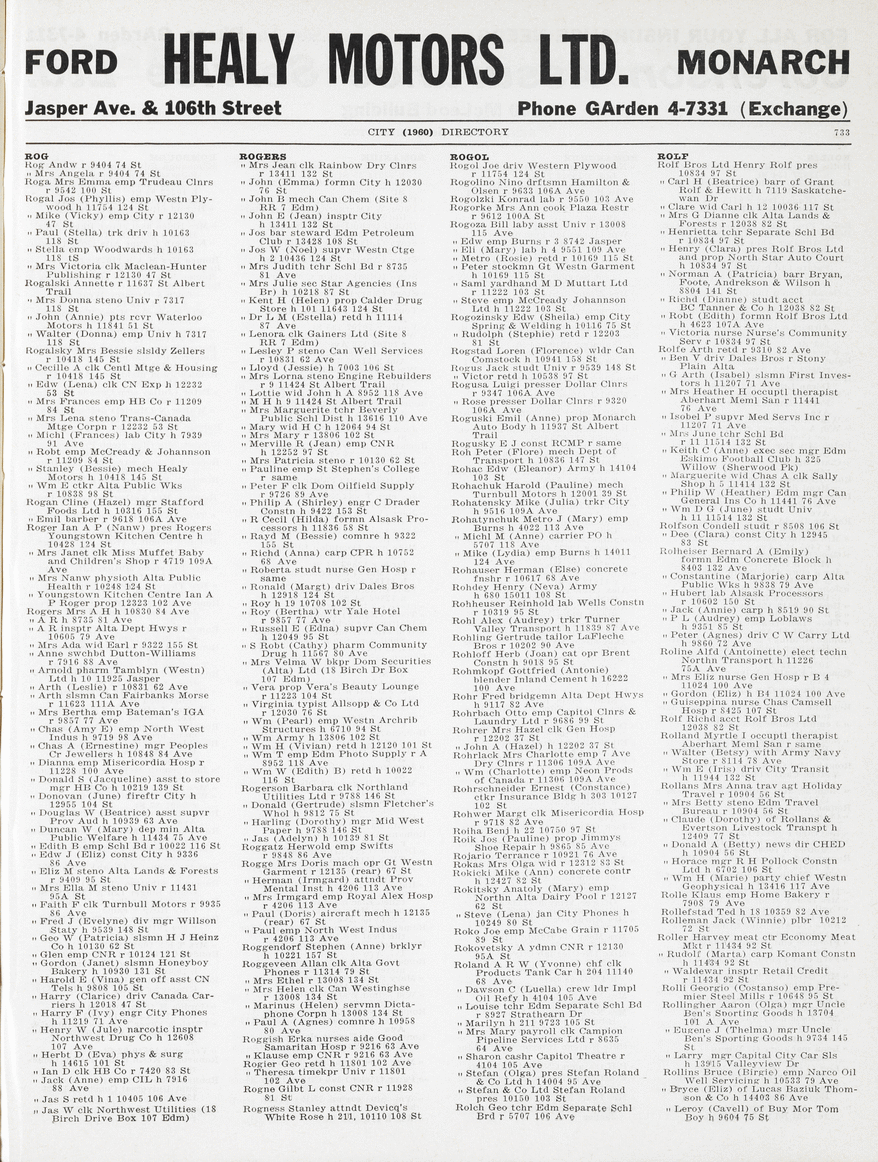 FORD HEALY MOTORS LTD. MONARCH
Jasper Ave. & 106th Street Phone GArden 4-7331 (Exchange)
CITY (1960) DIRECTORY 733
ROG
Rog Andw r 9404 74 St
" Mrs Angela r 9404 74 St
Roga Mrs Emma emp Trudeau Clnrs
r 9542 100 St
Rogal Jos (Phyllis) emp Westn Ply-
wood h 11754 124 St
" Mike (Vicky) emp City r 12130
47 St
" Paul (Stella) trk driv h 10163
118 St
" Stella emp Woodwards h 10163
118 tS
" Mrs Victoria clk Maclean-Hunter
Publishing r 12130 47 St
Rogalski Annette r 11637 St Albert
Trail
" Mrs Donna steno Univ r 7317
118 St
" John (Annie) pts rcvr Waterloo
Motors h 11841 51 St
" Walter (Donna) emp Univ h 7317
118 St
Rogalsky Mrs Bessie slsldy Zellers
r 10418 145 St
" Cecille A clk Centl Mtge & Housing
r 10418 145 St
" Edw (Lena) clk CN Exp h 12232
53 St
" Mrs Frances emp HB Co r 11209
84 St
" Mrs Lena steno Trans-Canada
Mtge Corpn r 12232 53 St
" Michl (Frances) lab City h 7939
91 Ave
" Robt emp McCready & Johannson
r 11209 84 St
" Stanley (Bessie) mech Healy
Motors h 10418 145 St
" Wm E ctkr Alta Public Wks
r 10838 98 St
Rogan Cline (Hazel) mgr Stafford
Foods Ltd h 10316 155 St
" Emil barber r 9618 106A Ave
Roger Ian A P (Nanw) pres Rogers
Youngstown Kitchen Centre h
10428 124 St
" Mrs Janet clk Miss Muffet Baby
and Children's Shop r 4719 109A
Ave
" Mrs Nanw physioth Alta Public
Health r 10248 124 St
" Youngstown Kitchen Centre Ian A
P Roger prop 12323 102 Ave
Rogers Mrs A H h 10830 84 Ave
" A R h 8735 81 Ave
" A R insptr Alta Dept Hwys r
10605 79 Ave
" Mrs Ada wid Earl r 9322 155 St
" Anne swchbd Dutton-Williams
r 7916 88 Ave
" Arnold pharm Tamblyn (Westn)
Ltd h 10 11925 Jasper
" Arth (Leslie) r 10831 62 Ave
" Arth slsmn Can Fairbanks Morse
r 11623 111A Ave
" Mrs Bertha emp Bateman's IGA
r 9857 77 Ave
" Chas (Amy E) emp North West
Indus h 9719 98 Ave
" Chas A (Ernestine) mgr Peoples
Cr Jewellers h 10848 84 Ave
" Dianna emp Misericordia Hosp r
11228 100 Ave
" Donald S (Jacqueline) asst to store
mgr HB Co h 10219 139 St
" Donovan (June) fireftr City h
12955 104 St
" Douglas W (Beatrice) asst supvr
Prov Aud h 10939 63 Ave
" Duncan W (Mary) dep min Alta
Public Welfare h 11434 75 Ave
" Edith B emp Schl Bd r 10022 116 St
" Edw J (Eliz) const City h 9336
86 Ave
" Eliz M steno Alta Lands & Forests
r 9409 95 St
" Mrs Ella M steno Univ r 11431
95A St
" Faith F clk Turnbull Motors r 9935
86 Ave
" Fred J (Evelyne) div mgr Willson
Staty h 9539 148 St
" Geo W (Patricia) slsmn H J Heinz
Co h 10130 62 St
" Glen emp CNR r 10124 121 St
" Gordon (Janet) slsmn Honeyboy
Bakery h 10930 131 St
" Harold E (Vina) gen off asst CN
Tels h 9808 105 St
" Harry (Clarice) driv Canada Car-
riers h 12018 47 St
" Harry F (Ivy) engr City Phones
h 11219 71 Ave
" Henry W (Jule) narcotic insptr
Northwest Drug Co h 12608
107 Ave
" Herbt D (Eva) phys & surg
h 14615 101 St
" Ian D clk HB Co r 7420 83 St
" Jack (Anne) emp CIL h 7916
88 Ave
" Jas S retd h 1 10405 106 Ave
" Jas W clk Northwest Utilities (18
Birch Drive Box 107 Edm)
ROGERS
" Mrs Jean clk Rainbow Dry Clnrs
r 13411 132 St
" John (Emma) formn City h 12030
76 St
" John B mech Can Chem (Site 8
RR 7 Edm)
" John E (Jean) insptr City
h 13411 132 St
" Jos bar steward Edm Petroleum
Club r 13428 108 St
" Jos W (Noel) supvr Westn Ctge
h 2 10436 124 St
" Mrs Judith tchr Schl Bd r 8735
81 Ave
" Mrs Julie sec Star Agencies (Ins
Br) h 10218 87 St
" Kent H (Helen) prop Calder Drug
Store h 101 11643 124 St
" Dr L M (Estella) retd h 11114
87 Ave
" Lenora clk Gainers Ltd (Site 8
RR 7 Edm)
" Lesley P steno Can Well Services
r 10831 62 Ave
" Lloyd (Jessie) h 7003 106 St
" Mrs Lorna steno Engine Rebuilders
r 9 11424 St Albert Trail
" Lottie wid John h A 8952 118 Ave
" M H h 9 11424 St Albert Trail
" Mrs Marguerite tchr Beverly
Public Schl Dist h 13616 110 Ave
" Mary wid H C h 12064 94 St
" Mrs Mary r 13806 102 St
" Merville R (Jean) emp CNR
h 12252 97 St
" Mrs Patricia steno r 10130 62 St
" Pauline emp St Stephen's College
r same
" Peter F clk Dom Oilfield Supply
r 9726 89 Ave
" Philip A (Shirley) engr C Drader
Constn h 9422 153 St
" R Cecil (Hilda) formn Alsask Pro-
cessors h 11836 58 St
" Rayd M (Bessie) comnre h 9322
155 St
" Richd (Anna) carp CPR h 10752
68 Ave
" Roberta studt nurse Gen Hosp r
same
" Ronald (Margt) driv Dales Bros
h 12918 124 St
" Roy h 19 10708 102 St
" Roy (Bertha) wtr Yale Hotel
r 9857 77 Ave
" Russell E (Edna) supvr Can Chem
h 12049 95 St
" S Robt (Cathy) pharm Community
Drug h 11567 80 Ave
" Mrs Velma W bkpr Dom Securities
(Alta) Ltd (18 Birch Dr Box
107 Edm)
" Vera prop Vera's Beauty Lounge
r 11223 104 St
" Virginia typist Allsopp & Co Ltd
r 12030 76 St
" Wm (Pearl) emp Western Archrib
Structures h 6710 94 St
" Wm Army h 13806 102 St
" Wm H (Vivian) retd h 12120 101 St
" Wm T emp Edm Photo Supply r A
8952 118 Ave
" Wm W (Edith B) retd h 10022
116 St
Rogerson Barbara clk Northland
Utilities Ltd r 9788 146 St
" Donald (Gertrude) slsmn Fletcher's
Whol h 9812 75 St
" Harling (Dorothy) mgr Mid West
Paper h 9788 146 St
" Jas (Adelyn) h 10139 81 St
Roggatz Herwold emp Swifts
r 9848 86 Ave
Rogge Mrs Doris mach opr Gt Westn
Garment r 12135 (rear) 67 St
" Herman (Irmgard) attndt Prov
Mental Inst h 4206 113 Ave
" Mrs Irmgard emp Royal Alex Hosp
r 4206 113 Ave
" Paul (Doris) aircraft mech h 12135
(rear) 67 St
" Paul emp North West Indus
r 4206 113 Ave
Roggendorf Stephen (Anne) brklyr
h 10221 157 St
Roggeveen Allan clk Alta Govt
Phones r 11314 79 St
" Mrs Ethel r 13008 134 St
" Mrs Helen clk Can Westinghse
r 13008 134 St
" Marinus (Helen) servmn Dicta-
phone Corpn h 13008 134 St
" Paul A (Agnes) comnre h 10958
80 Ave
Roggish Erka nurses aide Good
Samaritan Hosp r 9216 63 Ave
" Klause emp CNR r 9216 63 Ave
Rogier Geo retd h 11801 102 Ave
" Theresa timekpr Univ r 11801
102 Ave
Rogne Gilbt L const CNR r 11928
81 St
Rogness Stanley attndt Devicq's
White Rose h 211, 10110 108 St
ROGOL
Rogol Joe driv Western Plywood
r 11754 124 St
Rogolino Nino drftsmn Hamilton &
Olsen r 9633 106A Ave
Rogolzki Konrad lab r 9550 103 Ave
Rogorke Mrs Ann cook Plaza Restr
r 9612 100A St
Rogoza Bill laby asst Univ r 13008
115 Ave
" Edw emp Burns r 3 8742 Jasper
" Eli (Mary) lab h 4 9551 109 Ave
" Metro (Rosie) retd r 10169 115 St
" Peter stockmn Gt Westn Garment
h 10169 115 St
" Saml yardhand M D Muttart Ltd
r 11222 103 St
" Steve emp McCready Johannson
Ltd h 11222 103 St
Rogozinsky Edw (Sheila) emp City
Spring & Welding h 10116 75 St
" Rudolph (Stephie) retd r 12203
81 St
Rogstad Loren (Florence) wldr Can
Comstock h 10941 158 St
Rogus Jack studt Univ r 9539 148 St
" Victor retd h 10538 97 St
Rogusa Luigi presser Dollar Clnrs
r 9347 106A Ave
" Rose presser Dollar Clnrs r 9320
106A Ave
Roguski Emil (Anne) prop Monarch
Auto Body h 11937 St Albert
Trail
Rogusky E J const RCMP r same
Roh Peter (Flore) mech Dept of
Transport h 10836 147 St
Rohac Edw (Eleanor) Army h 14104
103 St
Rohachuk Harold (Pauline) mech
Turnbull Motors h 12001 39 St
Rohatensky Mike (Julia) trkr City
h 9516 109A Ave
Rohatynchuk Metro J (Mary) emp
Burns h 4022 113 Ave
" Michl M (Anne) carrier PO h
5707 118 Ave
" Mike (Lydia) emp Burns h 14011
124 Ave
Rohauser Herman (Else) concrete
fnshr r 10617 68 Ave
Rohdey Henry (Neva) Army
h 680 15011 108 St
Rohheuser Reinhold lab Wells Constn
r 10319 95 St
Rohl Alex (Audrey) trkr Turner
Valley Transport h 11839 87 Ave
Rohling Gertrude tailor LaFleche
Bros r 10202 90 Ave
Rohloff Herb (Joan) cat opr Brent
Constn h 9018 95 St
Rohmkopf Gottfried (Antonie)
blender Inland Cement h 16222
100 Ave
Rohr Fred bridgemn Alta Dept Hwys
r 9117 82 Ave
Rohrbach Otto emp Capitol Clnrs &
Laundry Ltd r 9686 99 St
Rohrer Mrs Hazel clk Gen Hosp
r 12202 37 St
" John A (Hazel) h 12202 37 St
Rohrlack Mrs Charlotte emp 7 Ave
Dry Clnrs r 11306 109A Ave
" Wm (Charlotte) emp Neon Prods
of Canada r 11306 109A Ave
Rohrschneider Ernest (Constance)
ctkr Insurance Bldg h 303 10127
102 St
Rohwer Margt clk Misericordia Hosp
r 9718 82 Ave
Roiha Benj h 22 10750 97 St
Roik Jos (Pauline) prop Jimmys
Shoe Repair h 9865 85 Ave
Rojarlo Terrance r 10921 76 Ave
Rokas Mrs Olga wid r 12312 83 St
Rokicki Mike (Ann) concrete contr
h 12427 82 St
Rokitsky Anatoly (Mary) emp
Northn Alta Dairy Pool r 12127
62 St
" Steve (Lena) jan City Phones h
10249 80 St
Roko Joe emp McCabe Grain r 11705
89 St
Rokovetsky A ydmn CNR r 12130
95A St
Roland A R W (Yvonne) chf clk
Products Tank Car h 204 11140
68 Ave
" Dawson C (Luella) crew ldr Impl
Oil Refy h 4104 105 Ave
" Louise tchr Edm Separate Schl Bd
r 8927 Strathearn Dr
" Marilyn h 211 9723 105 St
" Mrs Mary payroll clk Campion
Pipeline Services Ltd r 8635
64 Ave
" Sharon cashr Capitol Theatre r
4104 105 Ave
" Stefan (Olga) pres Stefan Roland
& Co Ltd h 14004 95 Ave
" Stefan & Co Ltd Stefan Roland
pres 10150 103 St
Rolch Geo tchr Edm Separate Schl
Brd r 5707 106 Ave
ROLF
Rolf Bros Ltd Henry Rolf pres
10834 97 St
" Carl H (Beatrice) barr of Grant
Rolf & Hewitt h 7119 Saskatche-
wan Dr
" Clare wid Carl h 12 10036 117 St
" Mrs G Dianne clk Alta Lands &
Forests r 12038 82 St
" Henrietta tchr Separate Schl Bd
r 10834 97 St
" Henry (Clara) pres Rolf Bros Ltd
and prop North Star Auto Court
h 10834 97 St
" Norman A (Patricia) barr Bryan,
Foote, Andrekson & Wilson h
8804 141 St
" Richd (Dianne) studt acct
BC Tanner & Co h 12038 82 St
" Robt (Edith) formn Rolf Bros Ltd
h 4623 107A Ave
" Victoria nurse Nurse's Community
Serv r 10834 97 St
Rolfe Arth retd r 9310 82 Ave
" Ben W driv Dales Bros r Stony
Plain Alta
" G Arth (Isabel) slsmn First Inves-
tors h 11207 71 Ave
" Mrs Heather H occuptl therapist
Aberhart Meml San r 11441
76 Ave
" Isobel P supvr Med Servs Inc r
11207 71 Ave
" Mrs June tchr Schl Bd
r 11 11514 132 St
" Keith C (Anne) exec sec mgr Edm
Eskimo Football Club h 325
Willow (Sherwood Pk)
" Marguerite wid Chas A clk Sally
Shop h 5 11414 132 St
" Philip W (Heather) Edm mgr Can
General Ins Co h 11441 76 Ave
" Wm D G (June) studt Univ
h 11 11514 132 St
Rolfson Condell studt r 8508 106 St
" Dee (Clara) const City h 12945
83 St
Rolheiser Bernard A (Emily)
formn Edm Concrete Block h
8403 132 Ave
" Constantine (Marjorie) carp Alta
Public Wks h 9838 79 Ave
" Hubert lab Alsask Processors
r 10602 150 St
" Jack (Annie) carp h 8519 90 St
" P L (Audrey) emp Loblaws
h 9351 85 St
" Peter (Agnes) driv C W Carry Ltd
h 9860 72 Ave
Roline Alfd (Antoinette) elect techn
Northn Transport h 11226
75A Ave
" Mrs Eliz nurse Gen Hosp r B 4
11024 100 Ave
" Gordon (Eliz) h B4 11024 100 Ave
" Guiseppina nurse Chas Camsell
Hosp r 8425 107 St
Rolf Richd acct Rolf Bros Ltd
12038 82 St
Rolland Myrtle I occuptl therapist
Aberhart Meml San r same
" Walter (Betsy) with Army Navy
Store r 8114 78 Ave
" Wm E (Iris) driv City Transit
h 11944 132 St
Rollans Mrs Anna trav agt Holiday
Travel r 10904 56 St
" Mrs Betty steno Edm Travel
Bureau r 10904 56 St
" Claude (Dorothy) of Rollans &
Evertson Livestock Transpt h
12409 77 St
" Donald A (Betty) news dir CHED
h 10904 56 St
" Horace mgr R H Pollock Constn
Ltd h 6702 106 St
" Wm H (Marie) party chief Westn
Geophysical h 13416 117 Ave
Rolle Klaus emp Home Bakery r
7908 79 Ave
Rollefstad Ted h 18 10359 82 Ave
Rolleman Jack (Winnie) plbr 10212
72 St
Roller Harvey meat ctr Economy Meat
Mkt r 11434 92 St
" Rudolf (Marta) carp Komant Constn
h 11434 92 St
" Waldewar insptr Retail Credit
r 11434 92 St
Rolli Georgio (Costanso) emp Pre-
mier Steel Mills r 10648 95 St
Rollingher Aaron (Olga) mgr Uncle
Ben's Sporting Goods h 13704
101 A Ave
" Eugene J (Thelma) mgr Uncle
Ben's Sporting Goods r 9734 145
St
" Larry mgr Capital City Car Sls
h 13915 Valleyview Dr
Rollins Bruce (Birgie) emp Narco Oil
Well Servicing h 10533 79 Ave
" Bryce (Eliz) of Lucas Baziuk Thom-
son & Co h 14403 86 Ave
" Leroy (Cavell) of Buy Mor Tom
Boy h 9604 75 St